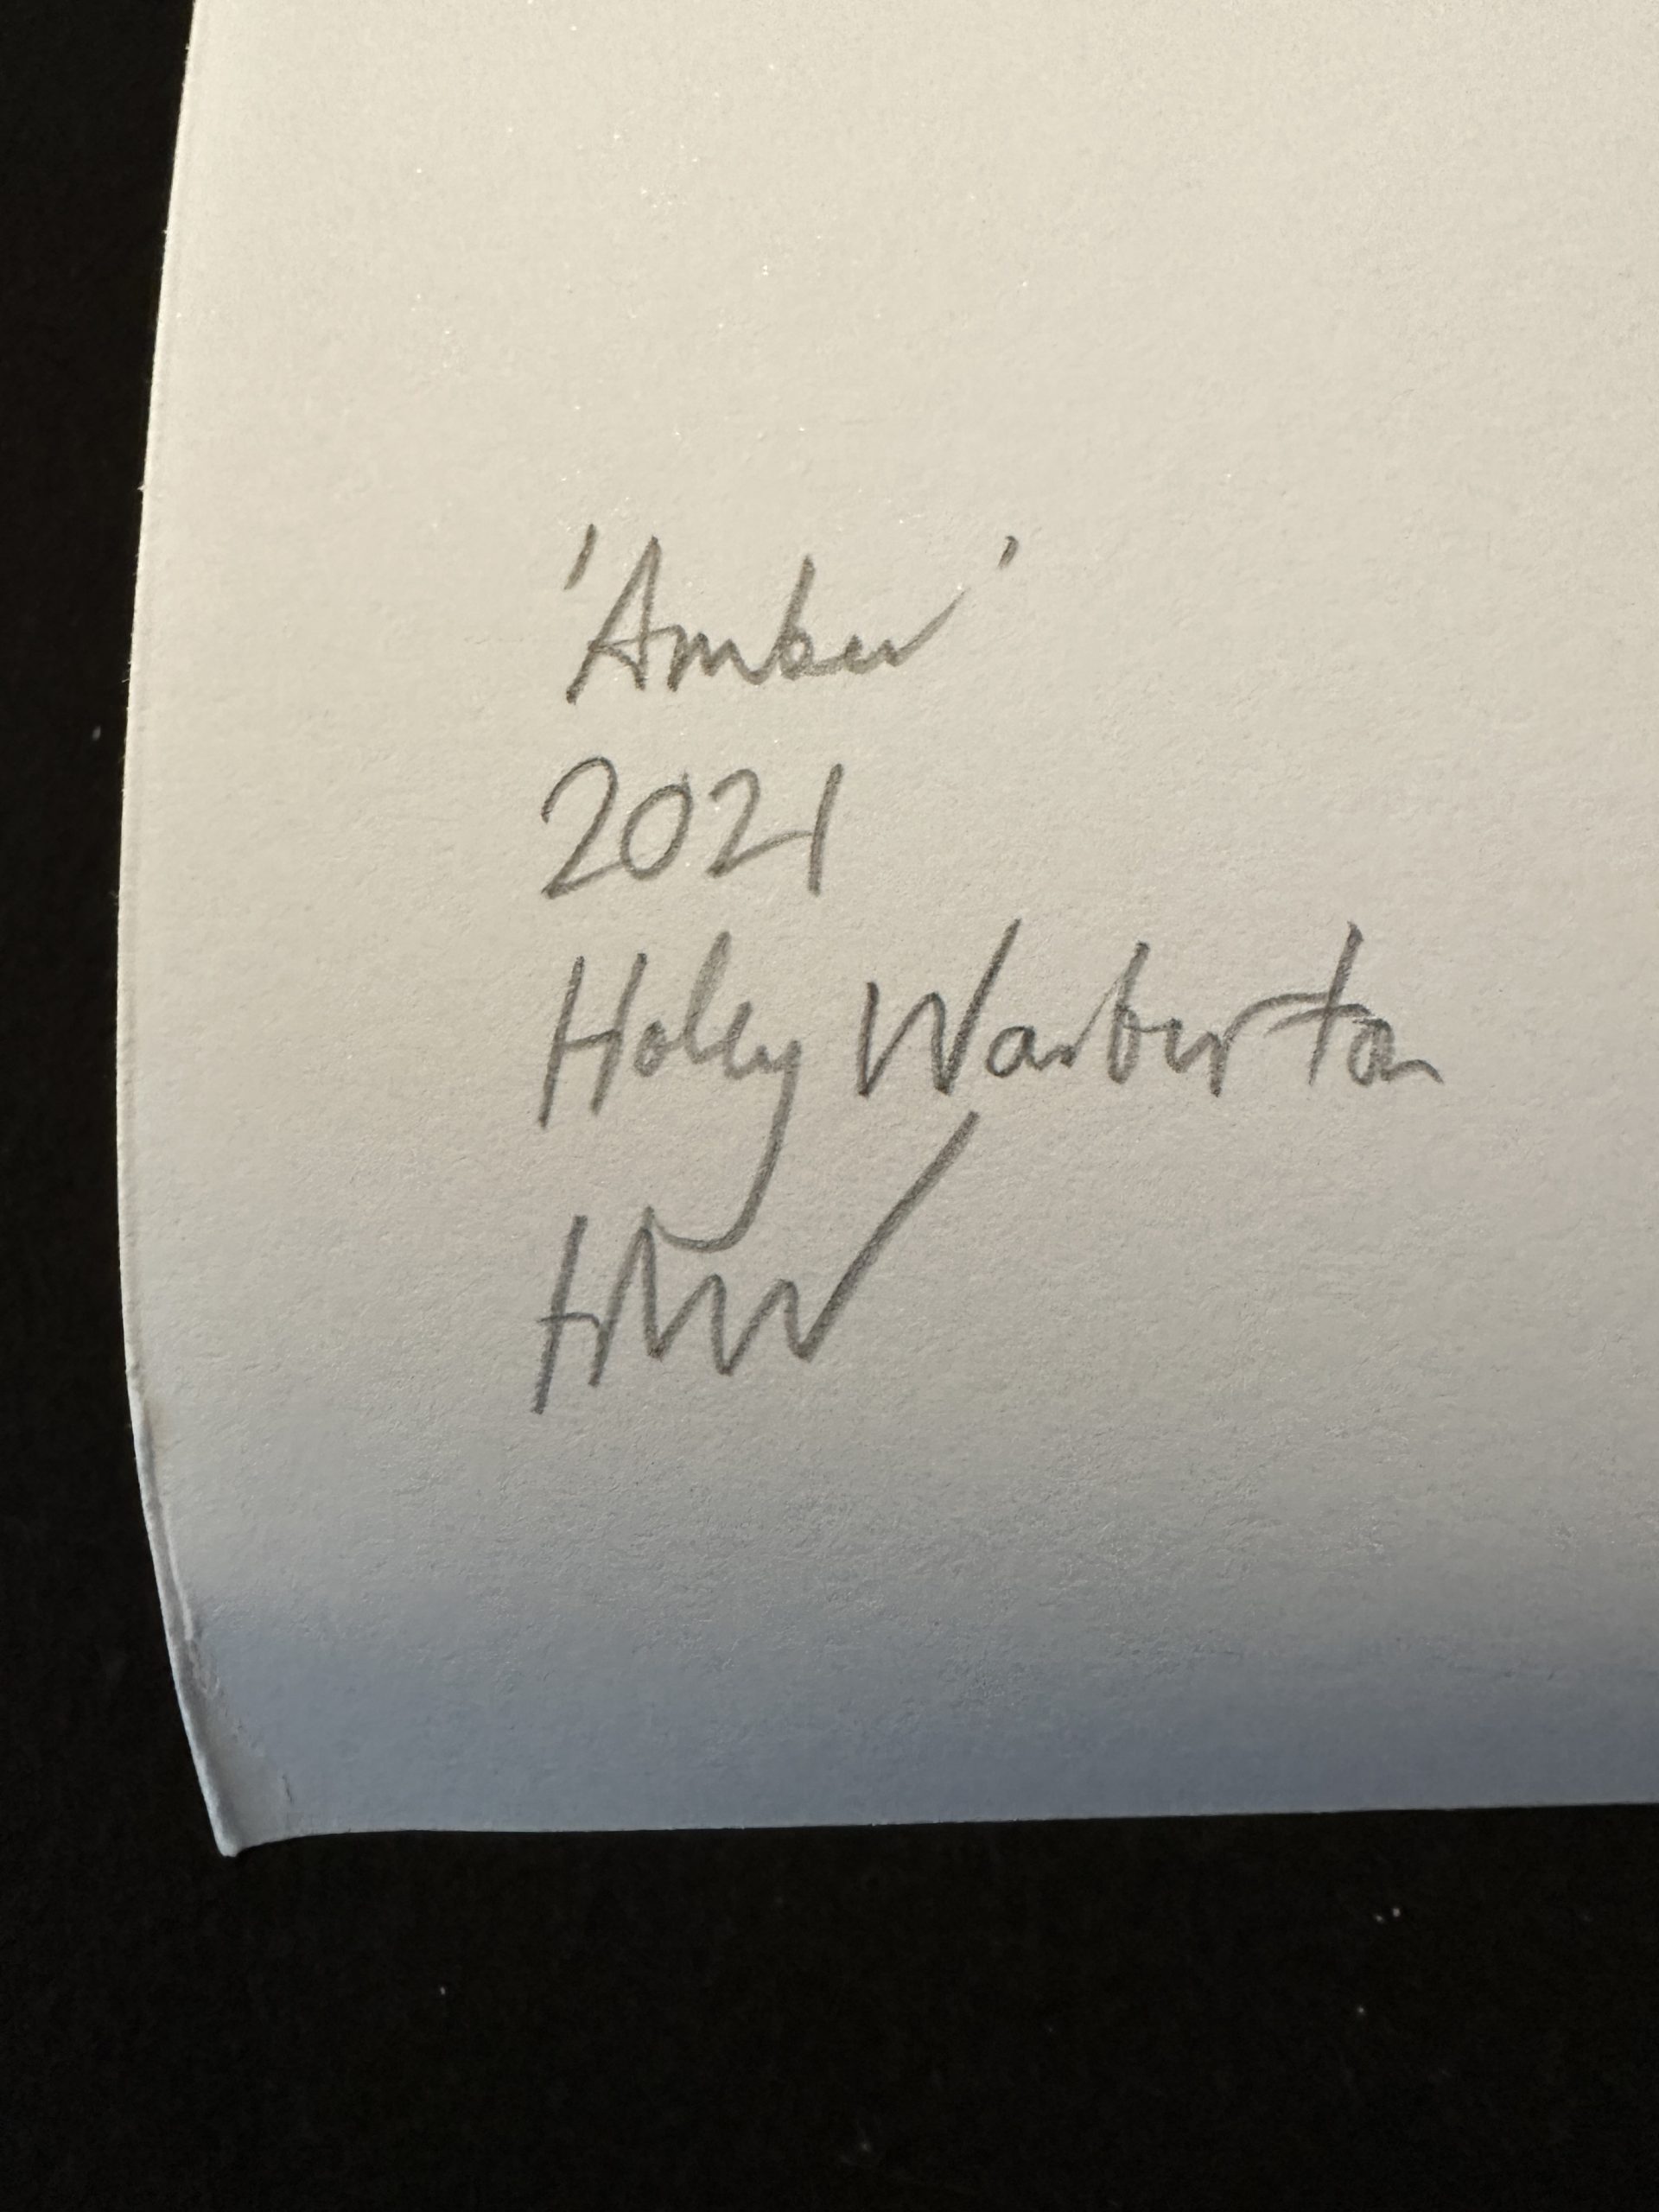 'Amber'
2021
Holly Warburton
HW